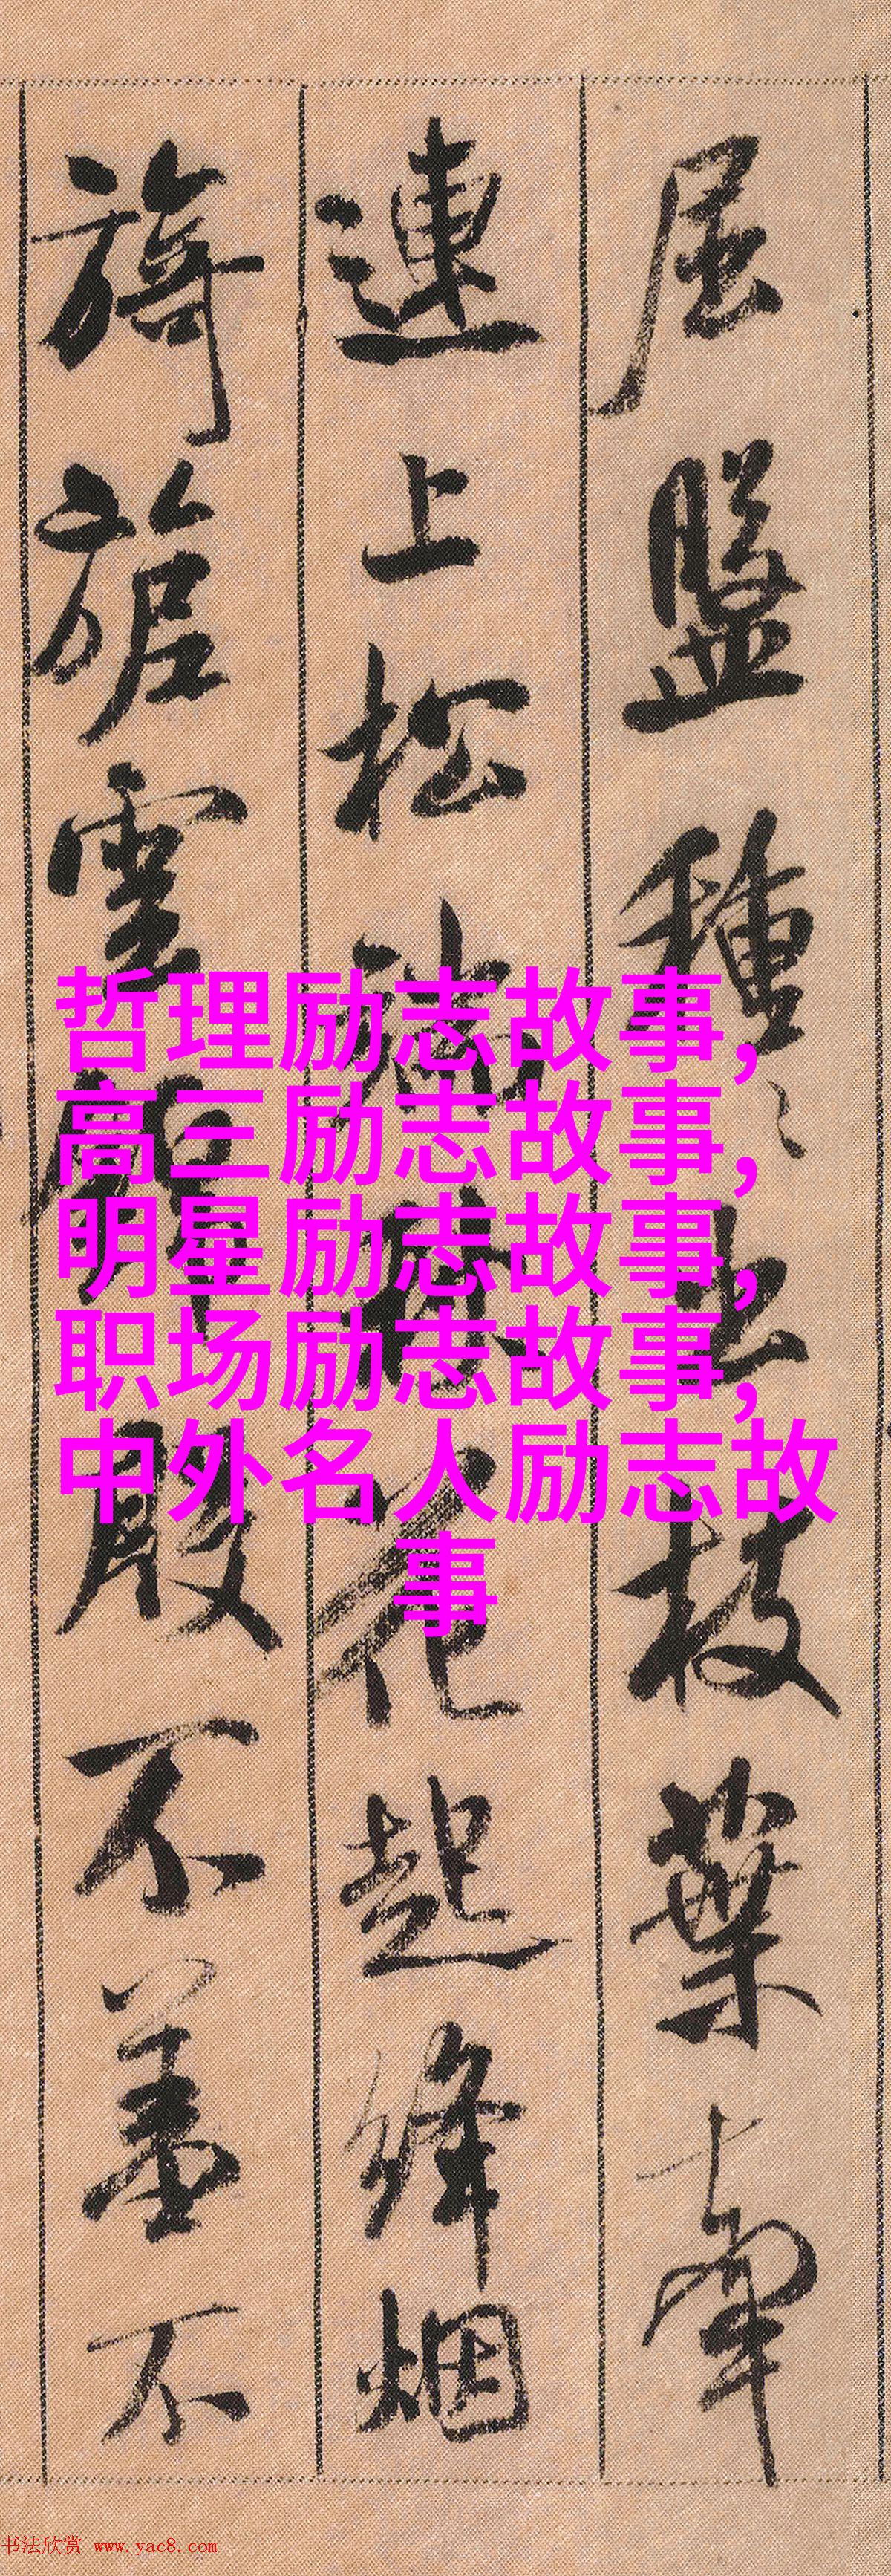 屈盤種々出枝葉牽
連上松端秋花起絳烟
旖旎雲錦殷不羞不
哲理励志故事,
高三励志故事,
明星励志故事,
职场励志故事,
中外名人励志故
事
书法欣赏 www.yac8.com